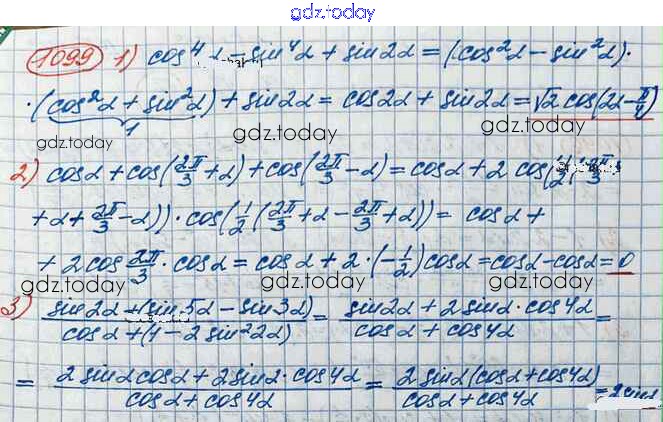 gdz.today
1099 1) cos⁴α - sin⁴α + sin2α = (cos²α - sin²α)·
·(cos²α + sin²α) + sin2α = cos2α + sin2α = √2 cos(2α - π/4)
1
gdz.today gdz.today
2) cosα + cos(2π/3 + α) + cos(2π/3 - α) = cosα + 2 cos(1/2(2π/3
+ α + 2π/3 - α))·cos(1/2(2π/3 + α - 2π/3 + α)) = cosα +
gdz.today gdz.today
+ 2cos 2π/3 · cosα = cosα + 2·(-1/2)cosα = cosα - cosα = 0
gdz.today gdz.today
3) (sin2α + (sin5α - sin3α))/(cosα + (1 - 2sin²2α)) = (sin2α + 2sinα·cos4α)/(cosα + cos4α) =
= (2sinαcosα + 2sinα·cos4α)/(cosα + cos4α) = (2sinα(cosα + cos4α))/(cosα + cos4α) = 2sinα
gdz.today gdz.today